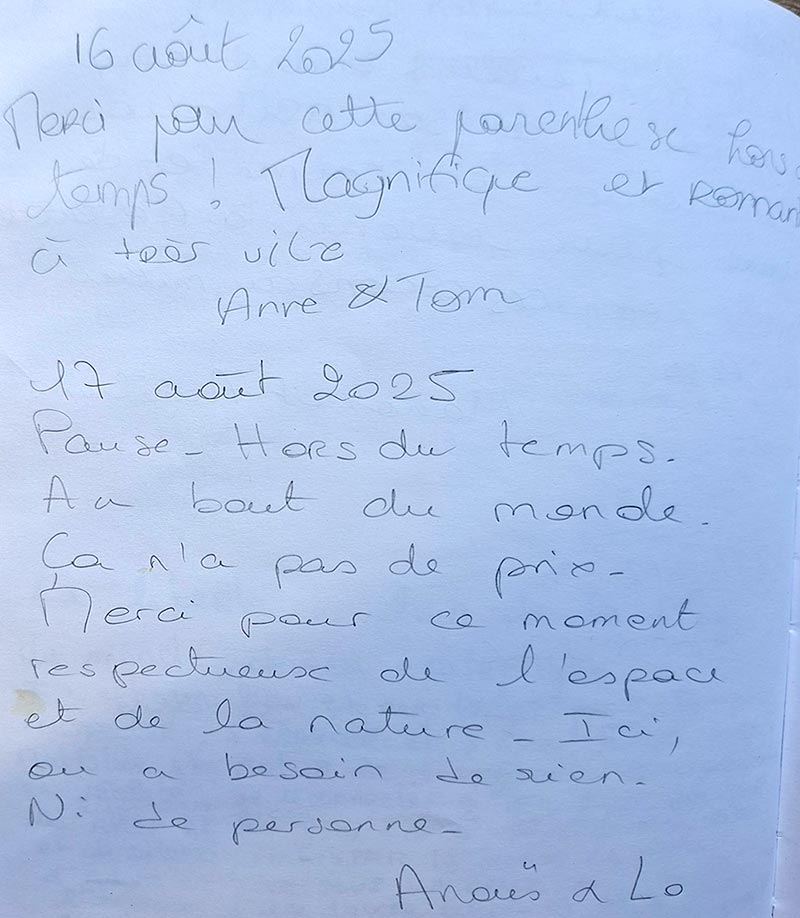 16 août 2025
Merci pour cette parenthèse hors
temps ! Magnifique et roman
à très vite
Anne & Tom
17 août 2025
Pause - Hors du temps.
Au bout du monde.
Ça n'a pas de prix -
Merci pour ce moment
respectueux de l'espace
et de la nature - Ici,
on a besoin de rien.
Ni de personne -
Anaïs & Lo